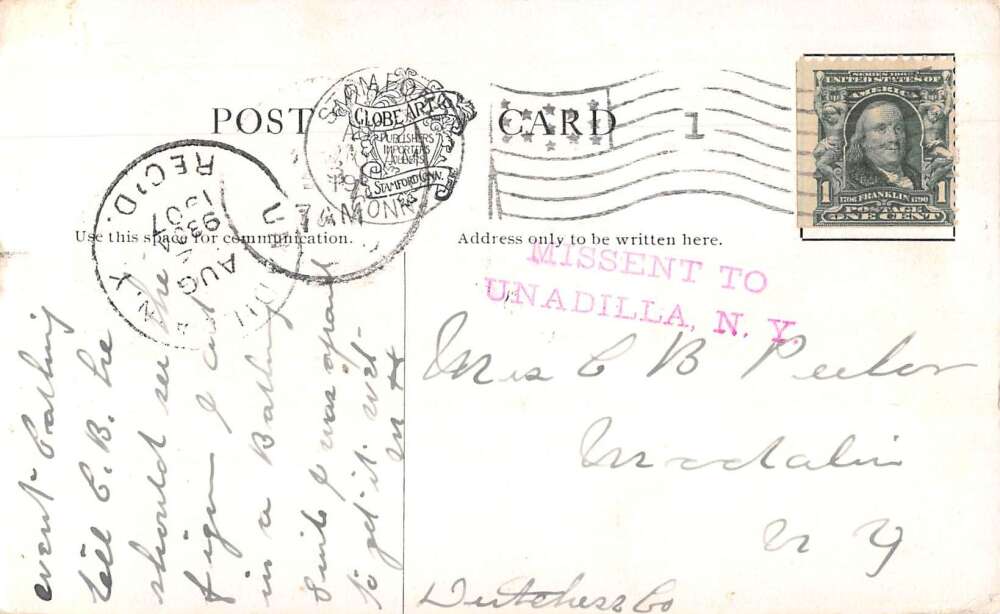 POST CARD
GLOBE ART
PUBLISHERS
IMPORTERS
STAMFORD CONN.
1
SERIES 1902
UNITED STATES OF
AMERICA
1 1706 FRANKLIN 1790 1
POSTAGE
ONE CENT
REC'D.
1907
AUG
N.Y.
Use this space for communication.
Address only to be written here.
MISSENT TO
UNADILLA, N. Y.
went bathing
tell C. B. he
should see the
figure I cut
in a Bathing
Suit I was afraid
to get it wet-
Mrs C B
Madalin
N Y
Dutchess Co